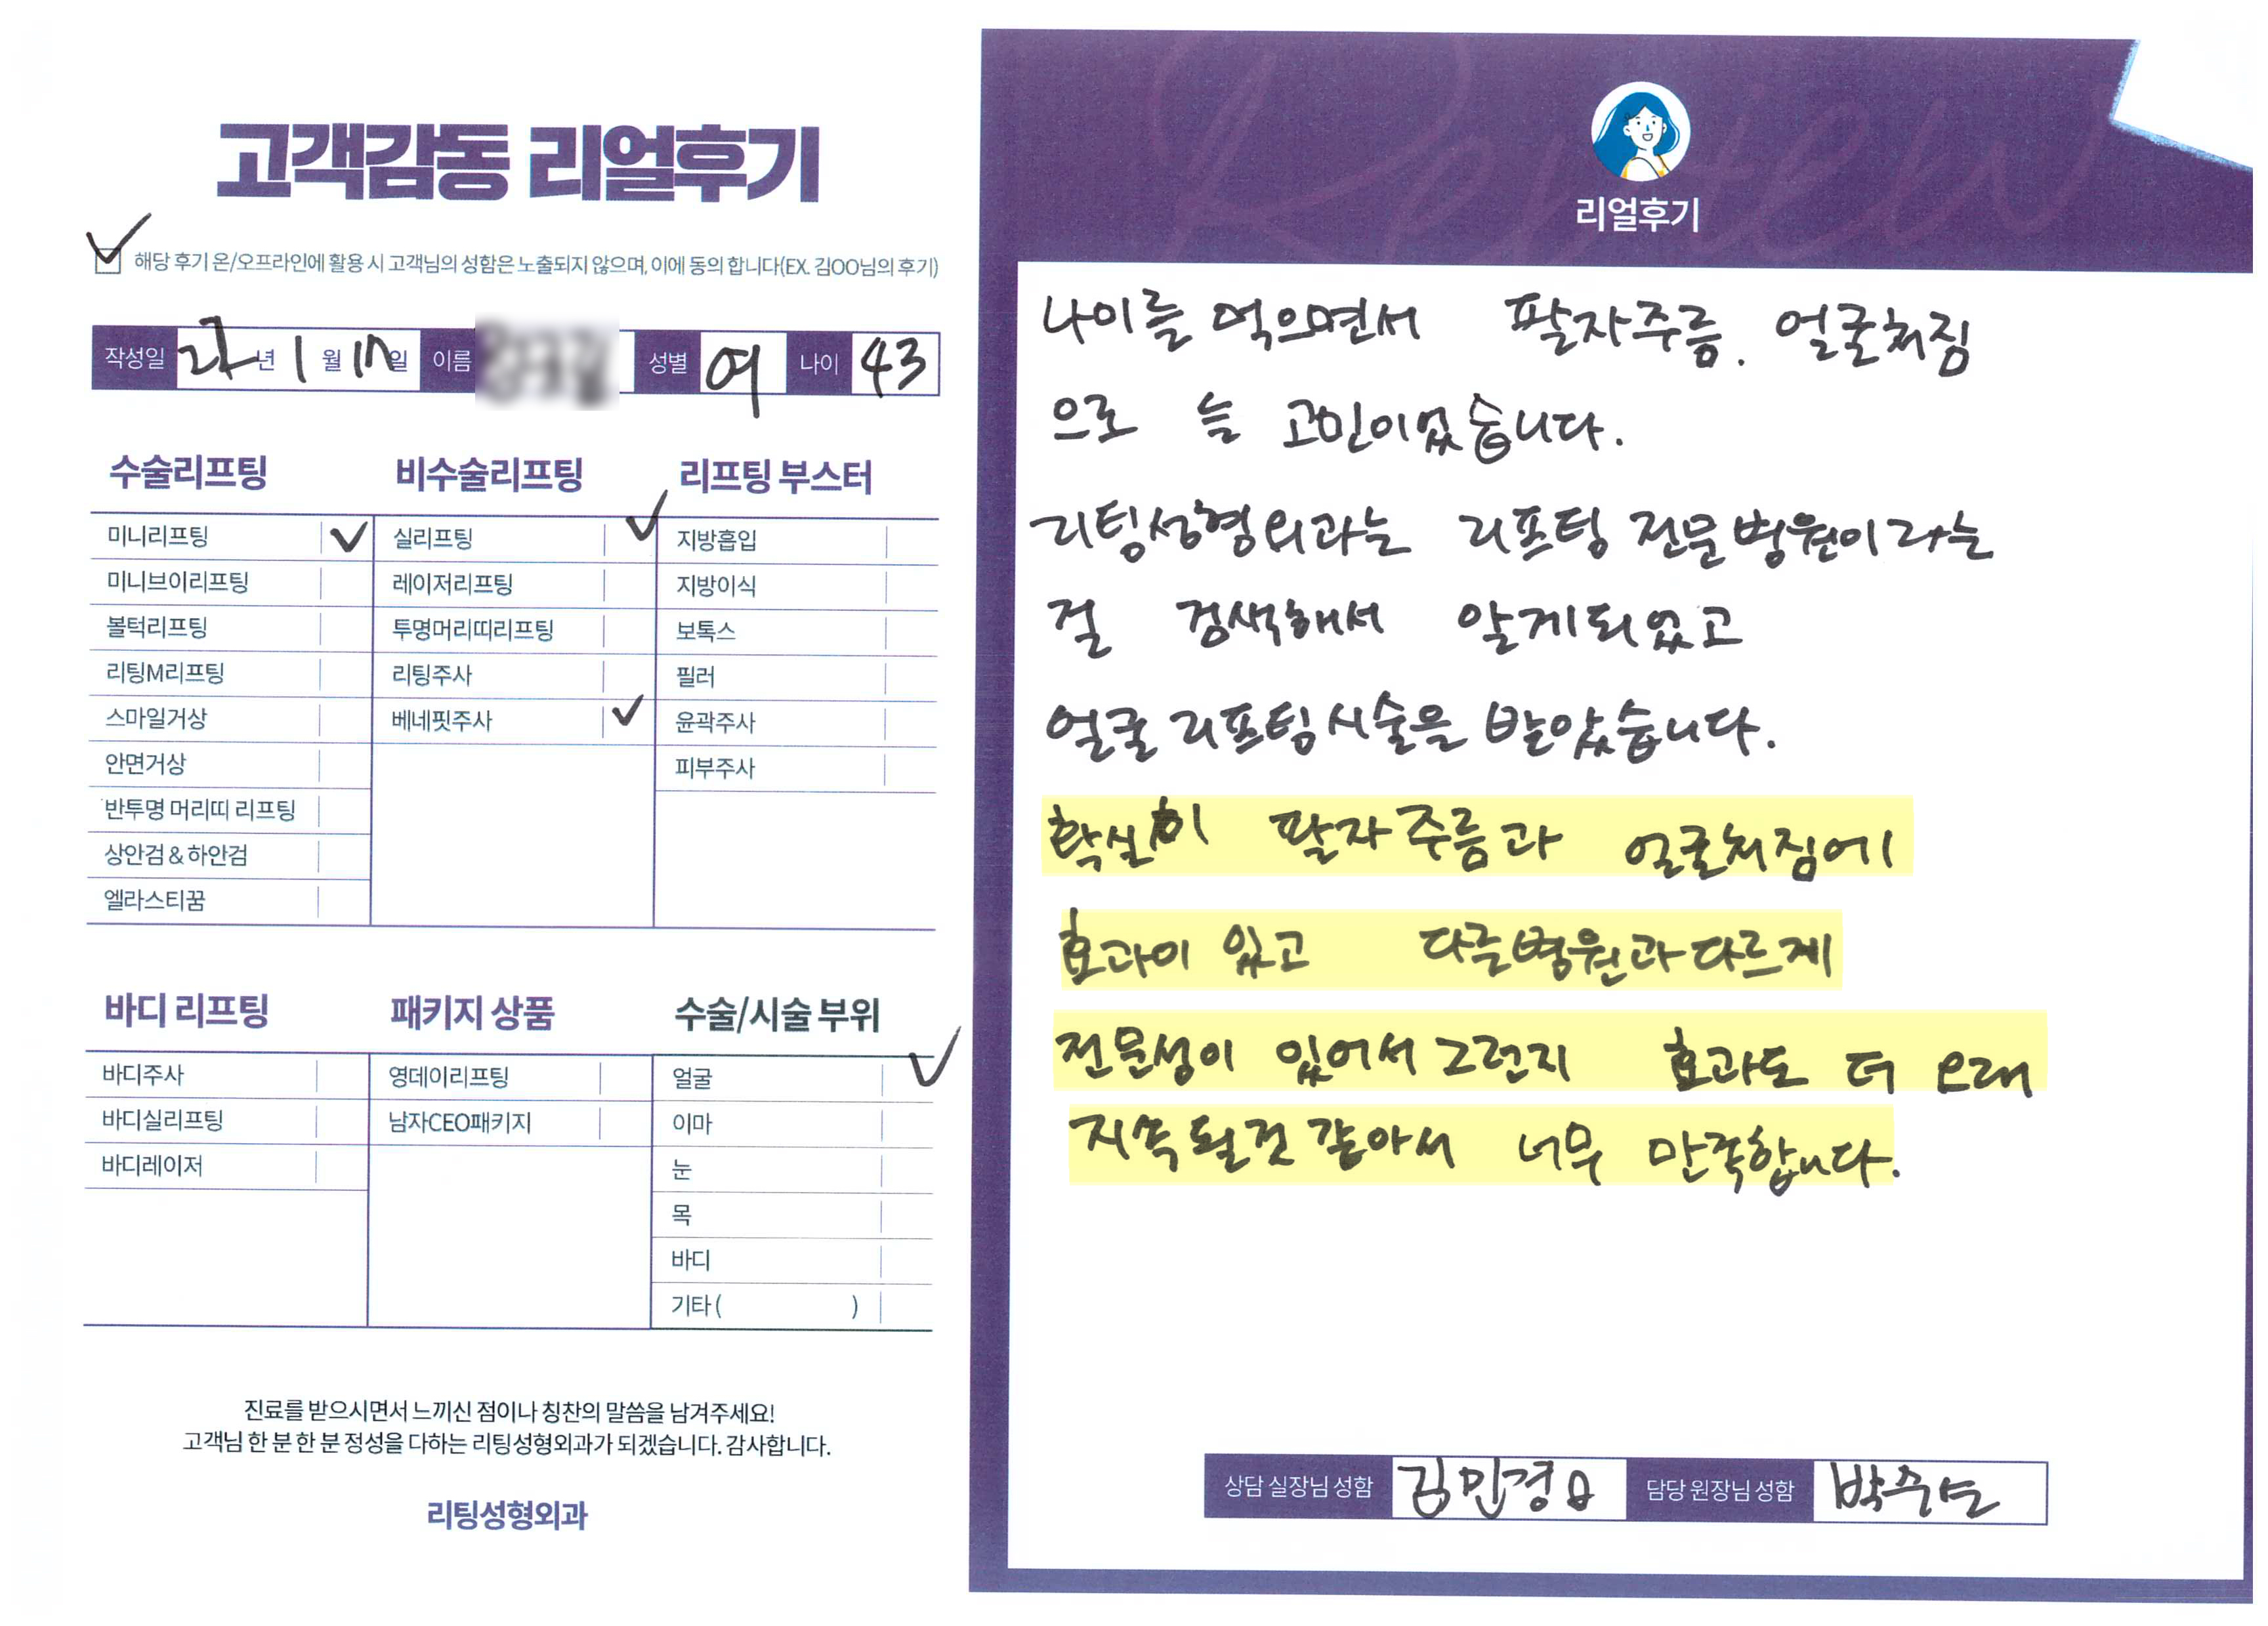 고객감동 리얼후기
해당 후기 온/오프라인에 활용 시 고객님의 성함은 노출되지 않으며, 이에 동의 합니다(EX. 김OO님의 후기)
작성일 년 1 월 17 일 이름 성별 여 나이 43
수술리프팅
미니리프팅
미니브이리프팅
볼턱리프팅
리팅M리프팅
스마일거상
안면거상
반투명 머리띠 리프팅
상안검 & 하안검
엘라스티꿈
비수술리프팅
실리프팅
레이저리프팅
투명머리띠리프팅
리팅주사
베네핏주사
리프팅 부스터
지방흡입
지방이식
보톡스
필러
윤곽주사
피부주사
바디 리프팅
바디주사
바디실리프팅
바디레이저
패키지 상품
영데이리프팅
남자CEO패키지
수술/시술 부위
얼굴
이마
눈
목
바디
기타 ( )
진료를 받으시면서 느끼신 점이나 칭찬의 말씀을 남겨주세요!
고객님 한 분 한 분 정성을 다하는 리팅성형외과가 되겠습니다. 감사합니다.
리팅성형외과
Review
리얼후기
나이를 먹으면서 팔자주름. 얼굴처짐
으로 늘 고민이었습니다.
리팅성형외과는 리프팅 전문병원이라는
걸 검색해서 알게되었고
얼굴 리프팅시술을 받았습니다.
확실히 팔자주름과 얼굴처짐에
효과이 있고 다른병원과 다르게
전문성이 있어서 그런지 효과도 더 오래
지속될것 같아서 너무 만족합니다.
상담 실장님 성함 김민경 담당 원장님 성함